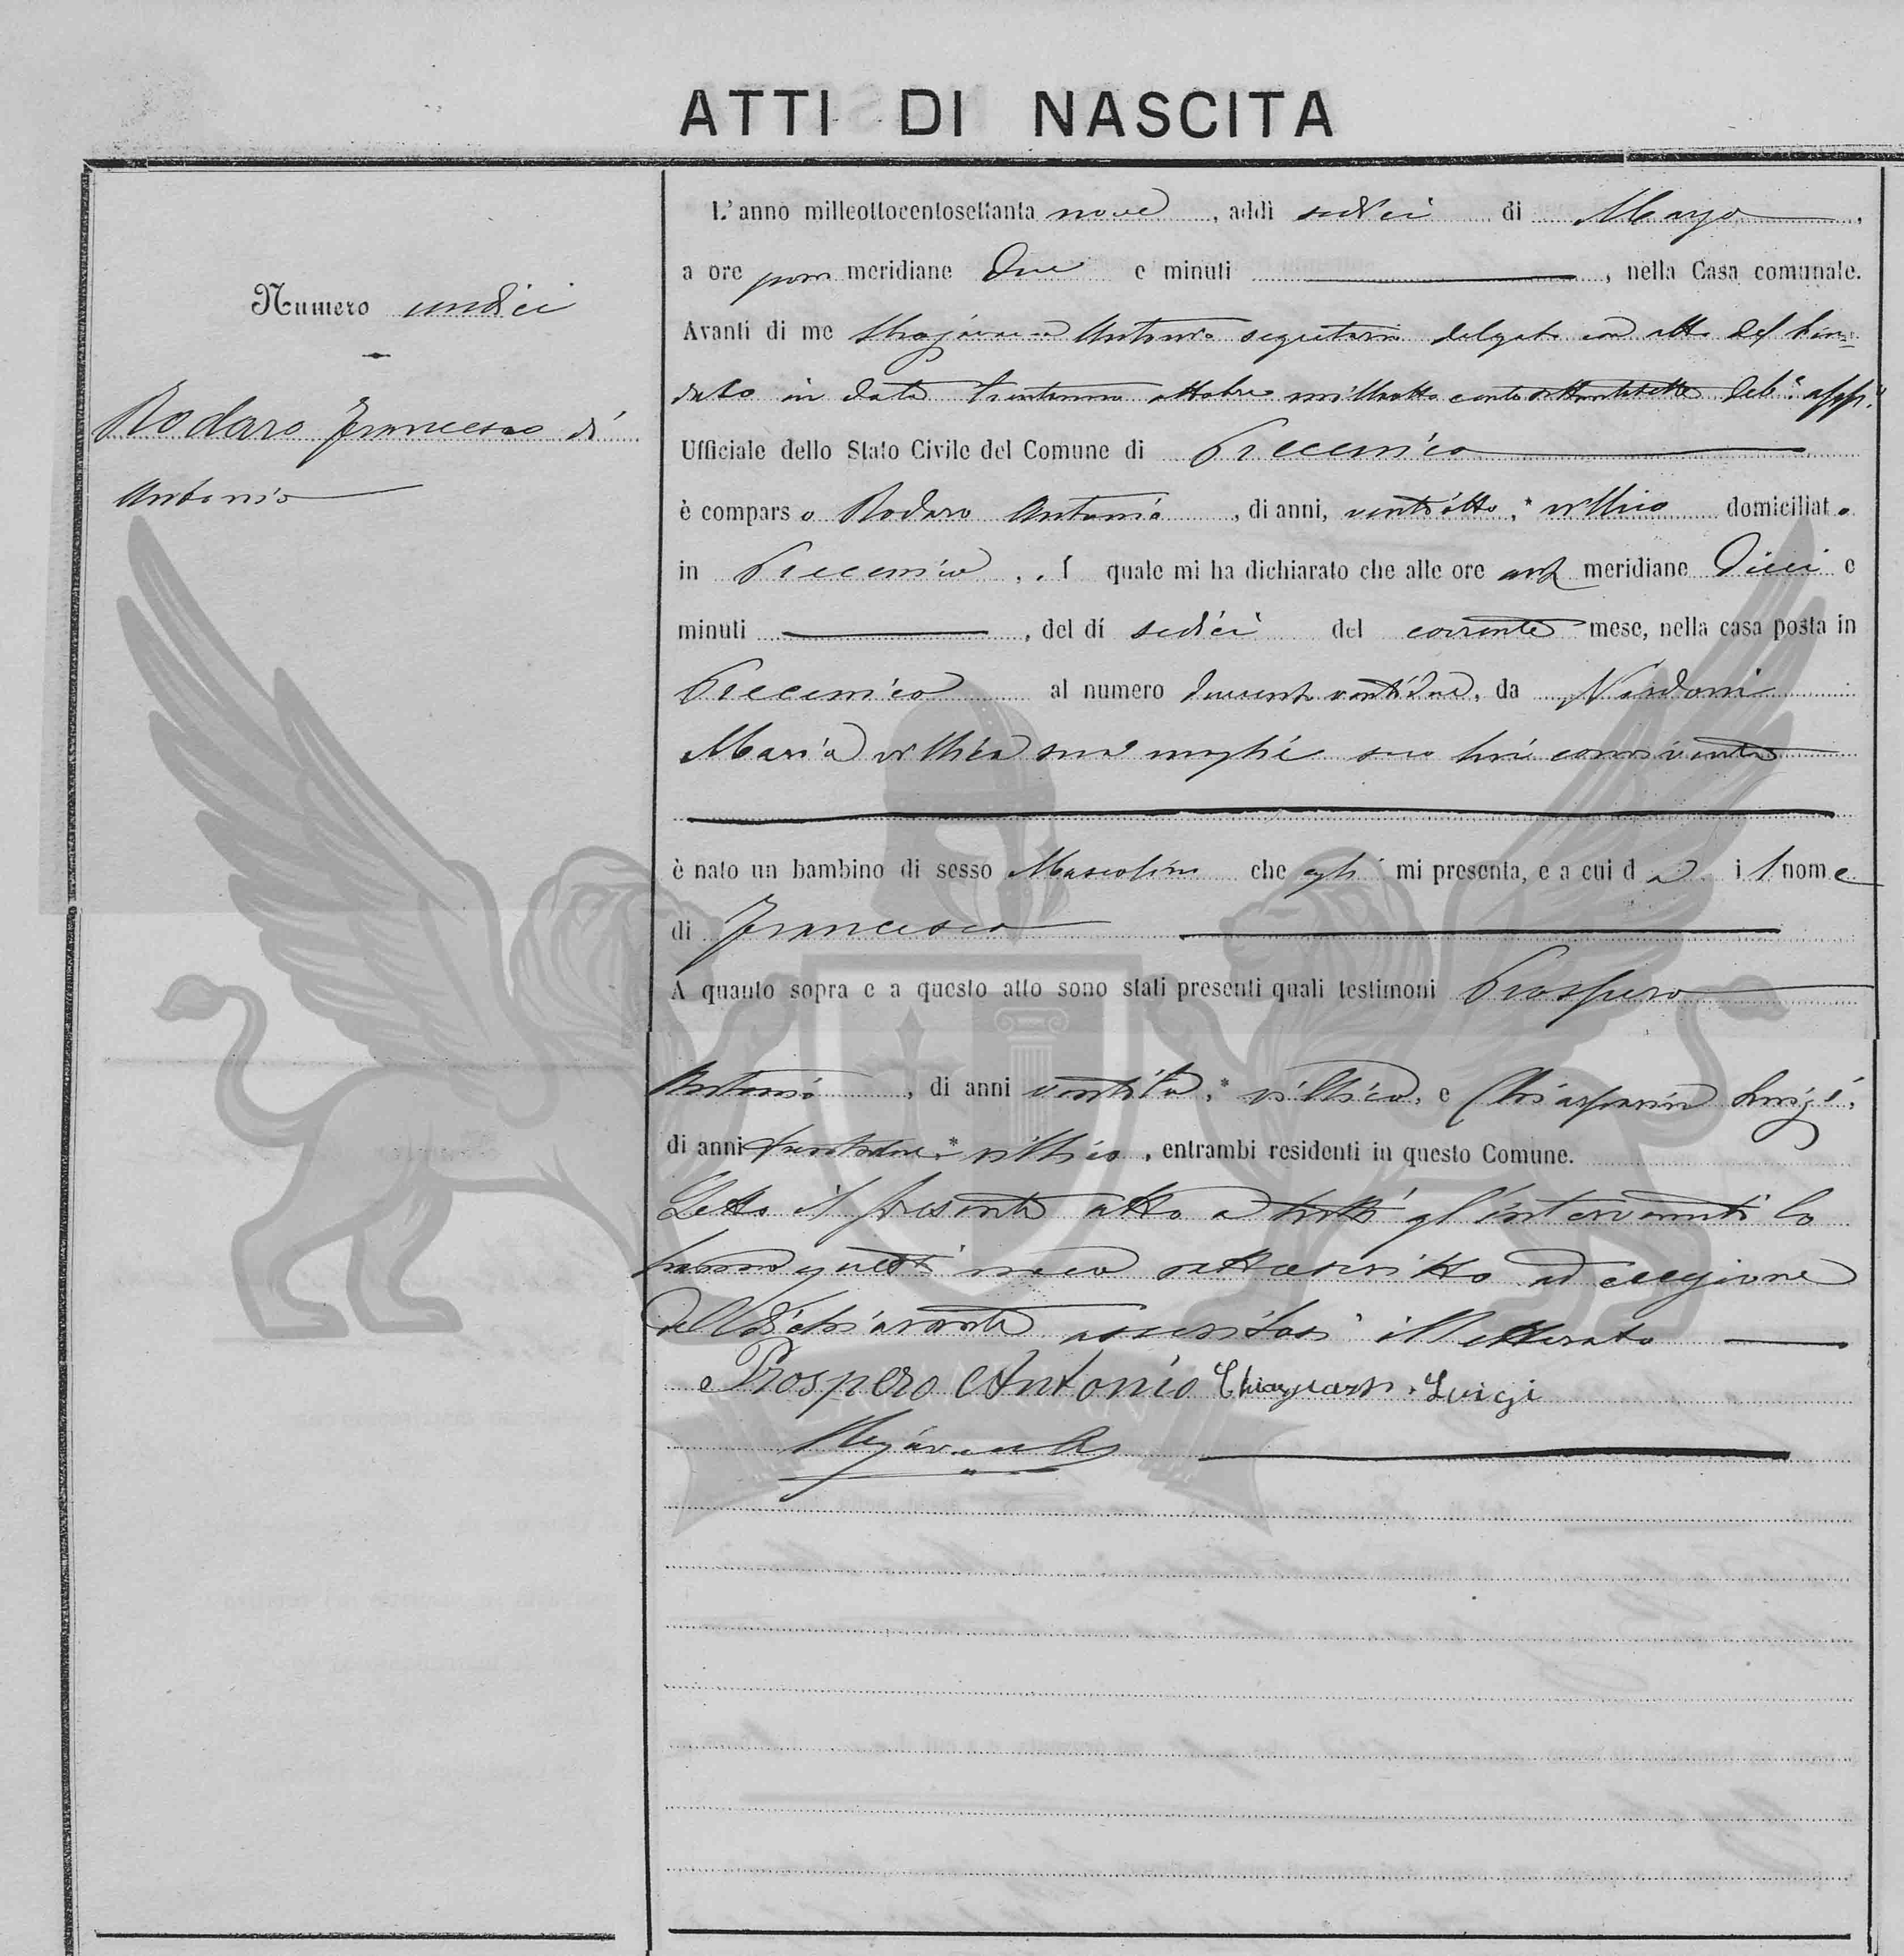 ATTI DI NASCITA
Numero undici
Rodaro Francesco di
Antonio
L'anno milleottocentosettanta nove, addì sedici di Marzo,
a ore pom meridiane due e minuti, nella Casa comunale.
Avanti di me Antonio segretario delegato con atto del Sin=
daco in data trentuno ottobre milleottocentosettantasette deb.e app.o
Ufficiale dello Stato Civile del Comune di Precenico
è comparso Rodaro Antonio, di anni, ventiotto,* villico domiciliato
in Precenico, il quale mi ha dichiarato che alle ore ant meridiane dieci e
minuti, del dí sedici del corrente mese, nella casa posta in
Precenico al numero duecentoventidue, da Nardoni
Maria villica sua moglie seco lui convivente
è nato un bambino di sesso Mascolino che egli mi presenta, e a cui dà il nome
di Francesco
A quanto sopra e a questo atto sono stati presenti quali testimoni Prospero
Antonio, di anni,* villico, e Luigi,
di anni trentadue,* villico, entrambi residenti in questo Comune.
Letto il presente atto a tutti gl'intervenuti lo
hanno questi meco sottoscritto ad eccezione
del dichiarante assentosi illetterato
Prospero Antonio Luigi